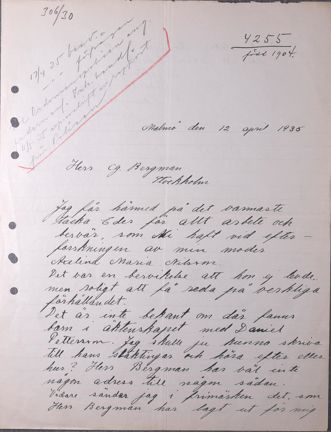 306/30
4255
född 1904.
17/4 35 besv.
Malmö den 12 april 1935
Herr Cg. Bergman
Stockholm
Jag får härmed på det varmaste
tacka Eder för allt arbete och
besvär, som Ni haft vid efter-
forskningen av min moder
Maria Nilsson.
Det var en besvikelse att hon ej levde
men roligt att få reda på verkliga
förhållandet.
Det är inte bekant om där fanns
barn i äktenskapet med Daniel
Pettersson. Jag skulle ju kunna skriva
till hans släktingar och höra efter eller
hur? Herr Bergman har väl inte
någon adress till någon sådan.
Vidare sänder jag i frimärken det, som
Herr Bergman har lagt ut för mig